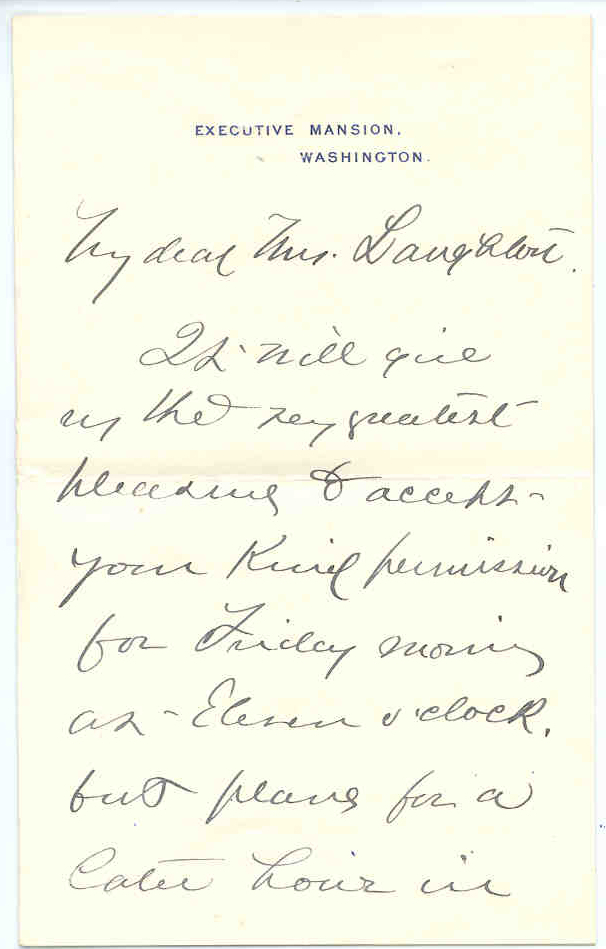 EXECUTIVE MANSION.
WASHINGTON.
My dear Mrs. Laughton.
It will give
my the very greatest
pleasure to accept
your Kind permission
for Friday morning
at Eleven o'clock,
but plans for a
later hour in